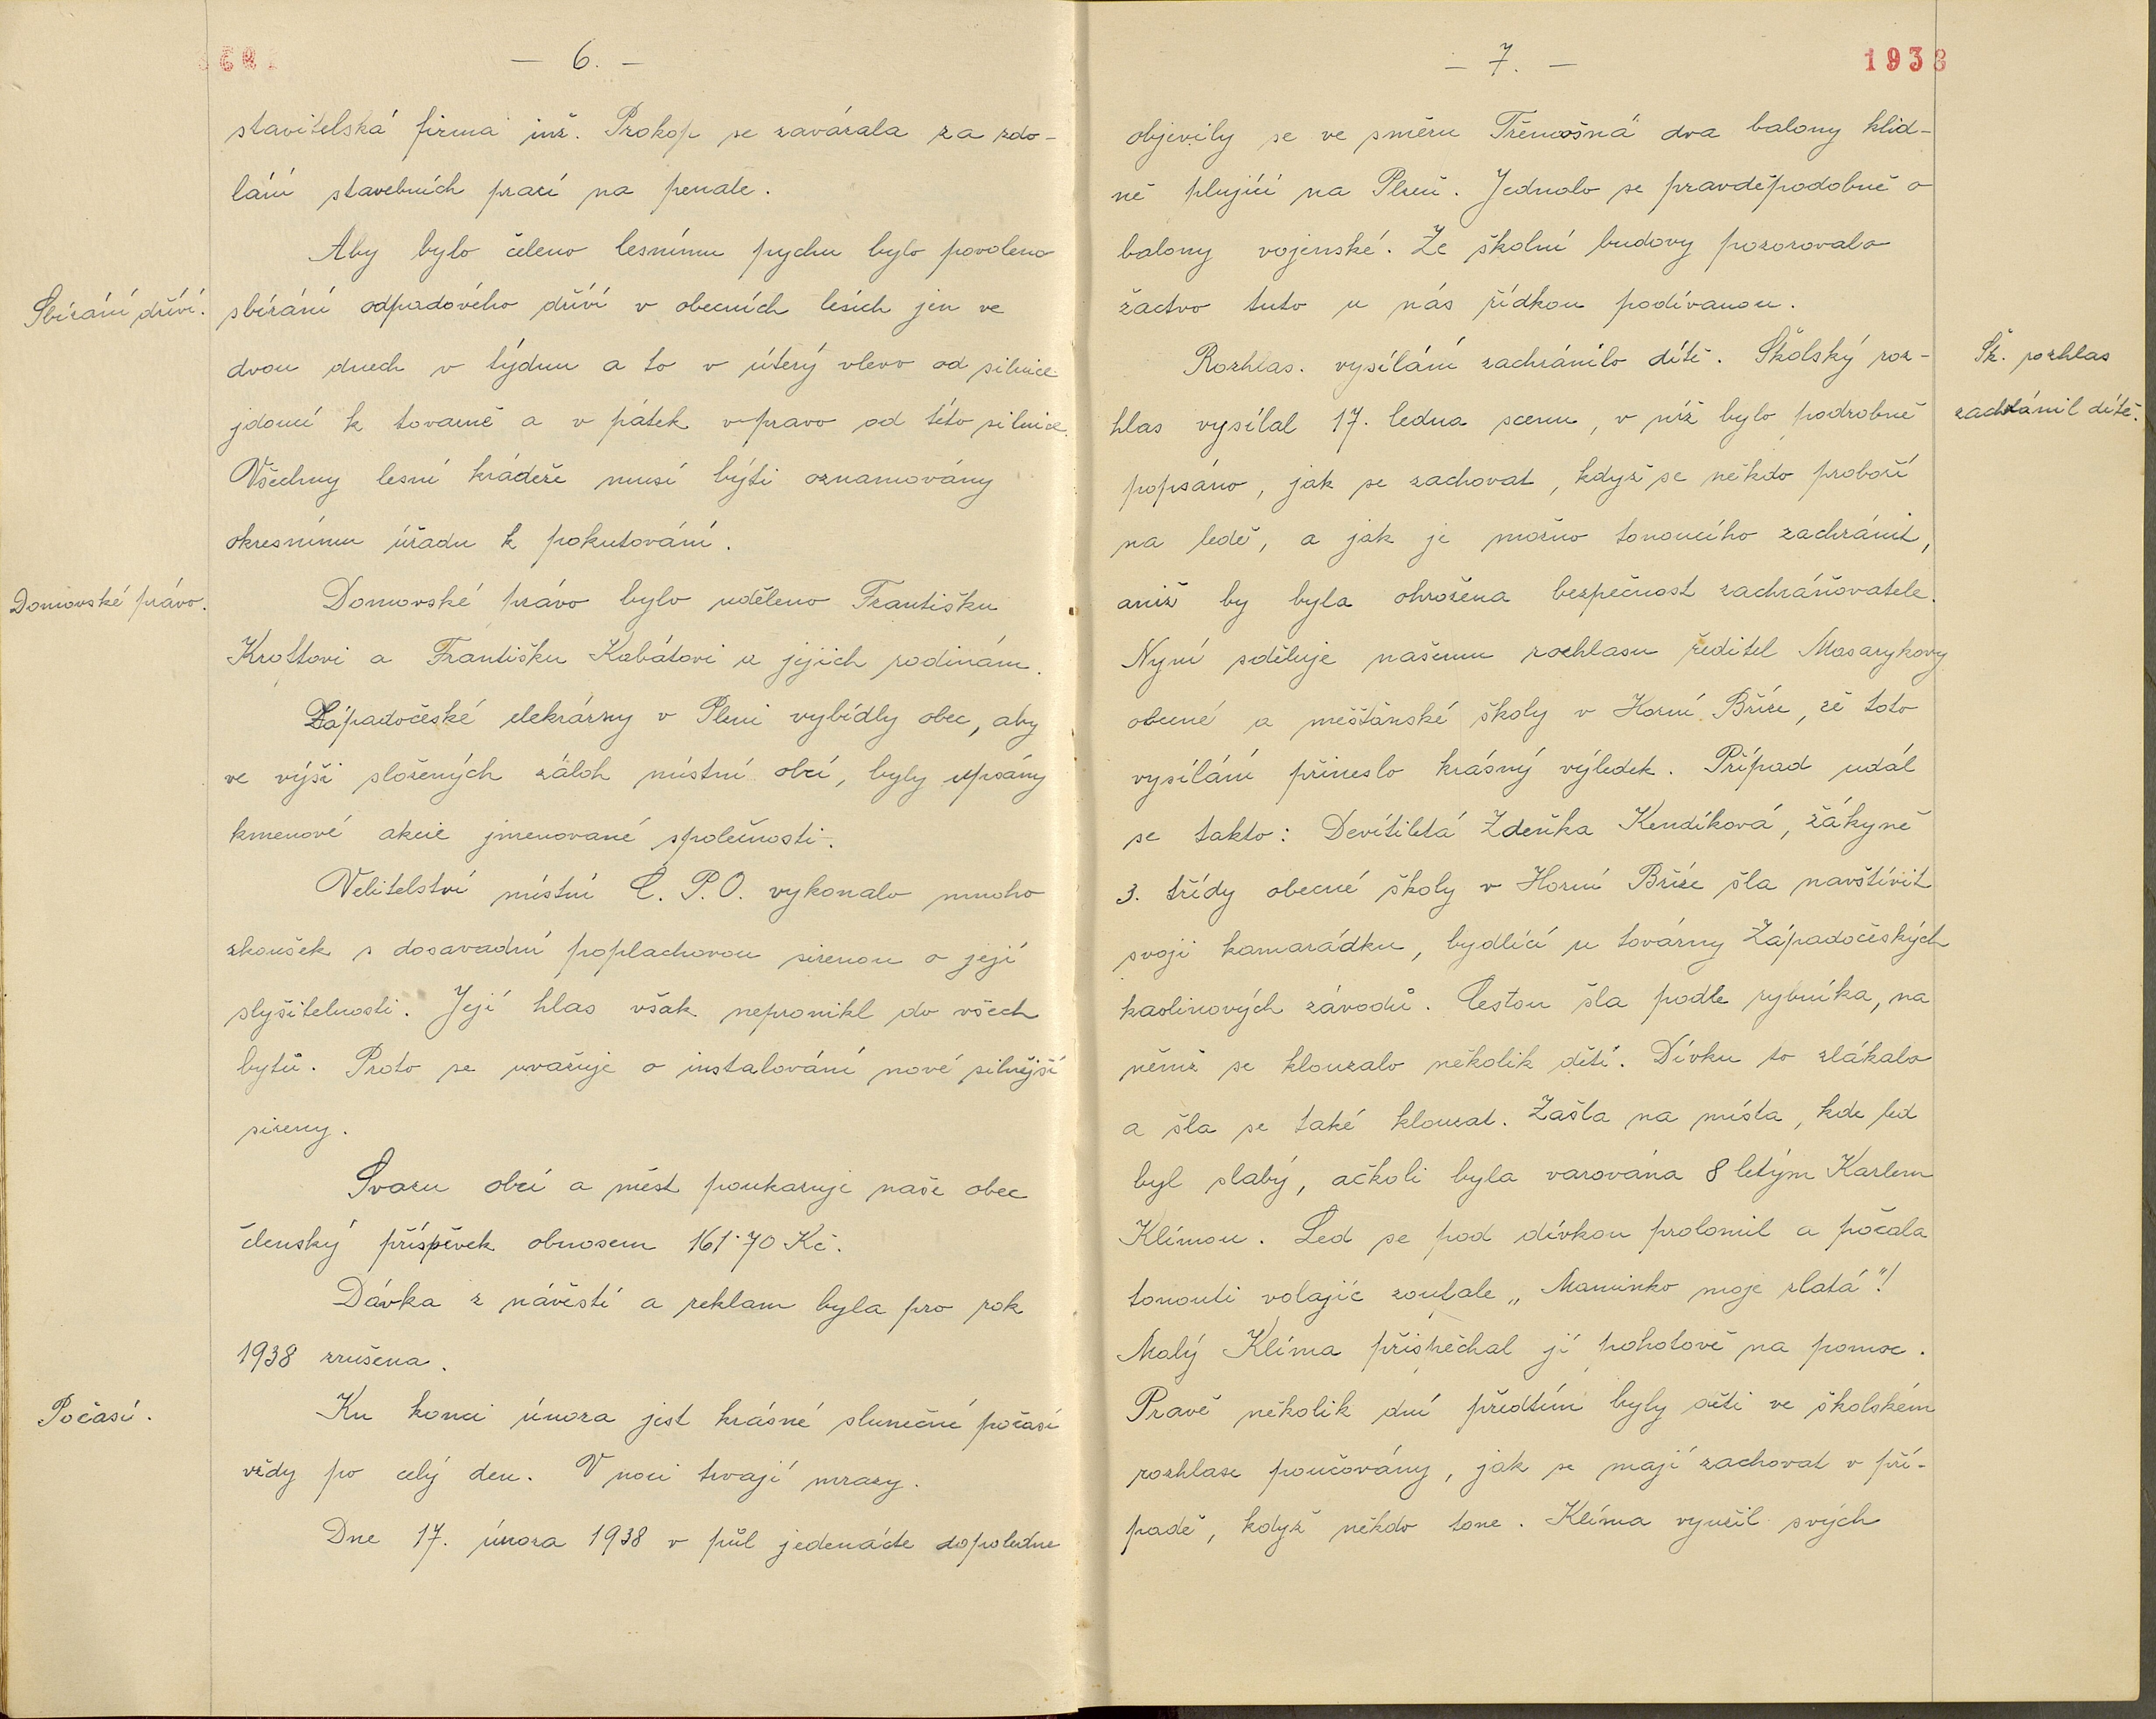 — 6. —
stavitelská firma inž. Prokop se zavázala za zdo-
lání stavebních prací na penale.
Aby bylo čeleno lesnímu pychu bylo povoleno
Sbírání dříví.
sbírání odpadového dříví v obecních lesích jen ve
dvou dnech v týdnu a to v úterý vlevo od silnice
jdoucí k továrně a v pátek vpravo od této silnice.
Všechny lesní krádeže musí býti oznamovány
okresnímu úřadu k pokutování.
Domovské právo.
Domovské právo bylo uděleno Františku
Kroftovi a Františku Kabátovi a jejich rodinám.
Západočeské elekrárny v Plzni vybídly obec, aby
ve výši složených záloh místní obcí, byly upsány
kmenové akcie jmenované společnosti.
Velitelství místní C. P. O. vykonalo mnoho
zkoušek s dosavadní poplachovou sirenou o její
slyšitelnosti. Její hlas však nepronikl do všech
bytů. Proto se uvažuje o instalování nové silnější
sireny.
Svazu obcí a měst poukazuje naše obec
členský příspěvek obnosem 161·70 Kč.
Dávka z návěstí a reklam byla pro rok
1938 zrušena.
Počasí.
Ku konci února jest krásné slunečné počasí
vždy po celý den. V noci trvají mrazy.
Dne 17. února 1938 v půl jedenácte dopoledne
— 7. —
1938
objevily se ve směru Třemošná dva balony klid-
ně plující na Plzeň. Jednalo se pravděpodobně o
balony vojenské. Ze školní budovy pozorovalo
žactvo tuto u nás řídkou podívanou.
Rozhlas. vysílání zachránilo dítě. Školský roz-
Šk. rozhlas
hlas vysílal 17. ledna scenu, v níž bylo podrobně
zachránil dítě.
popsáno, jak se zachovat, když se někdo proboří
na ledě, a jak je možno tonoucího zachránit,
aniž by byla ohrožena bezpečnost zachráňovatele.
Nyní sděluje našemu rozhlasu ředitel Masarykovy
obecné a měšťanské školy v Horní Bříze, že toto
vysílání přineslo krásný výledek. Případ udál
se takto: Devítiletá Zdeňka Kendíková, žákyně
3. třídy obecné školy v Horní Bříze šla navštívit
svoji kamarádku, bydlící u továrny Západočeských
kaolinových závodů. Cestou šla podle rybníka, na
němž se klouzalo několik dětí. Dívku to zlákalo
a šla se také klouzat. Zašla na místa, kde led
byl slabý, ačkoli byla varována 8 letým Karlem
Klímou. Led se pod dívkou prolomil a počala
tonouti volajíc zoufale „Maminko moje zlatá"!
Malý Klíma přispěchal jí pohotově na pomoc.
Pravě několik dní předtím byly děti ve školském
rozhlase poučovány, jak se mají zachovat v pří-
padě, když někdo tone. Klíma využil svých